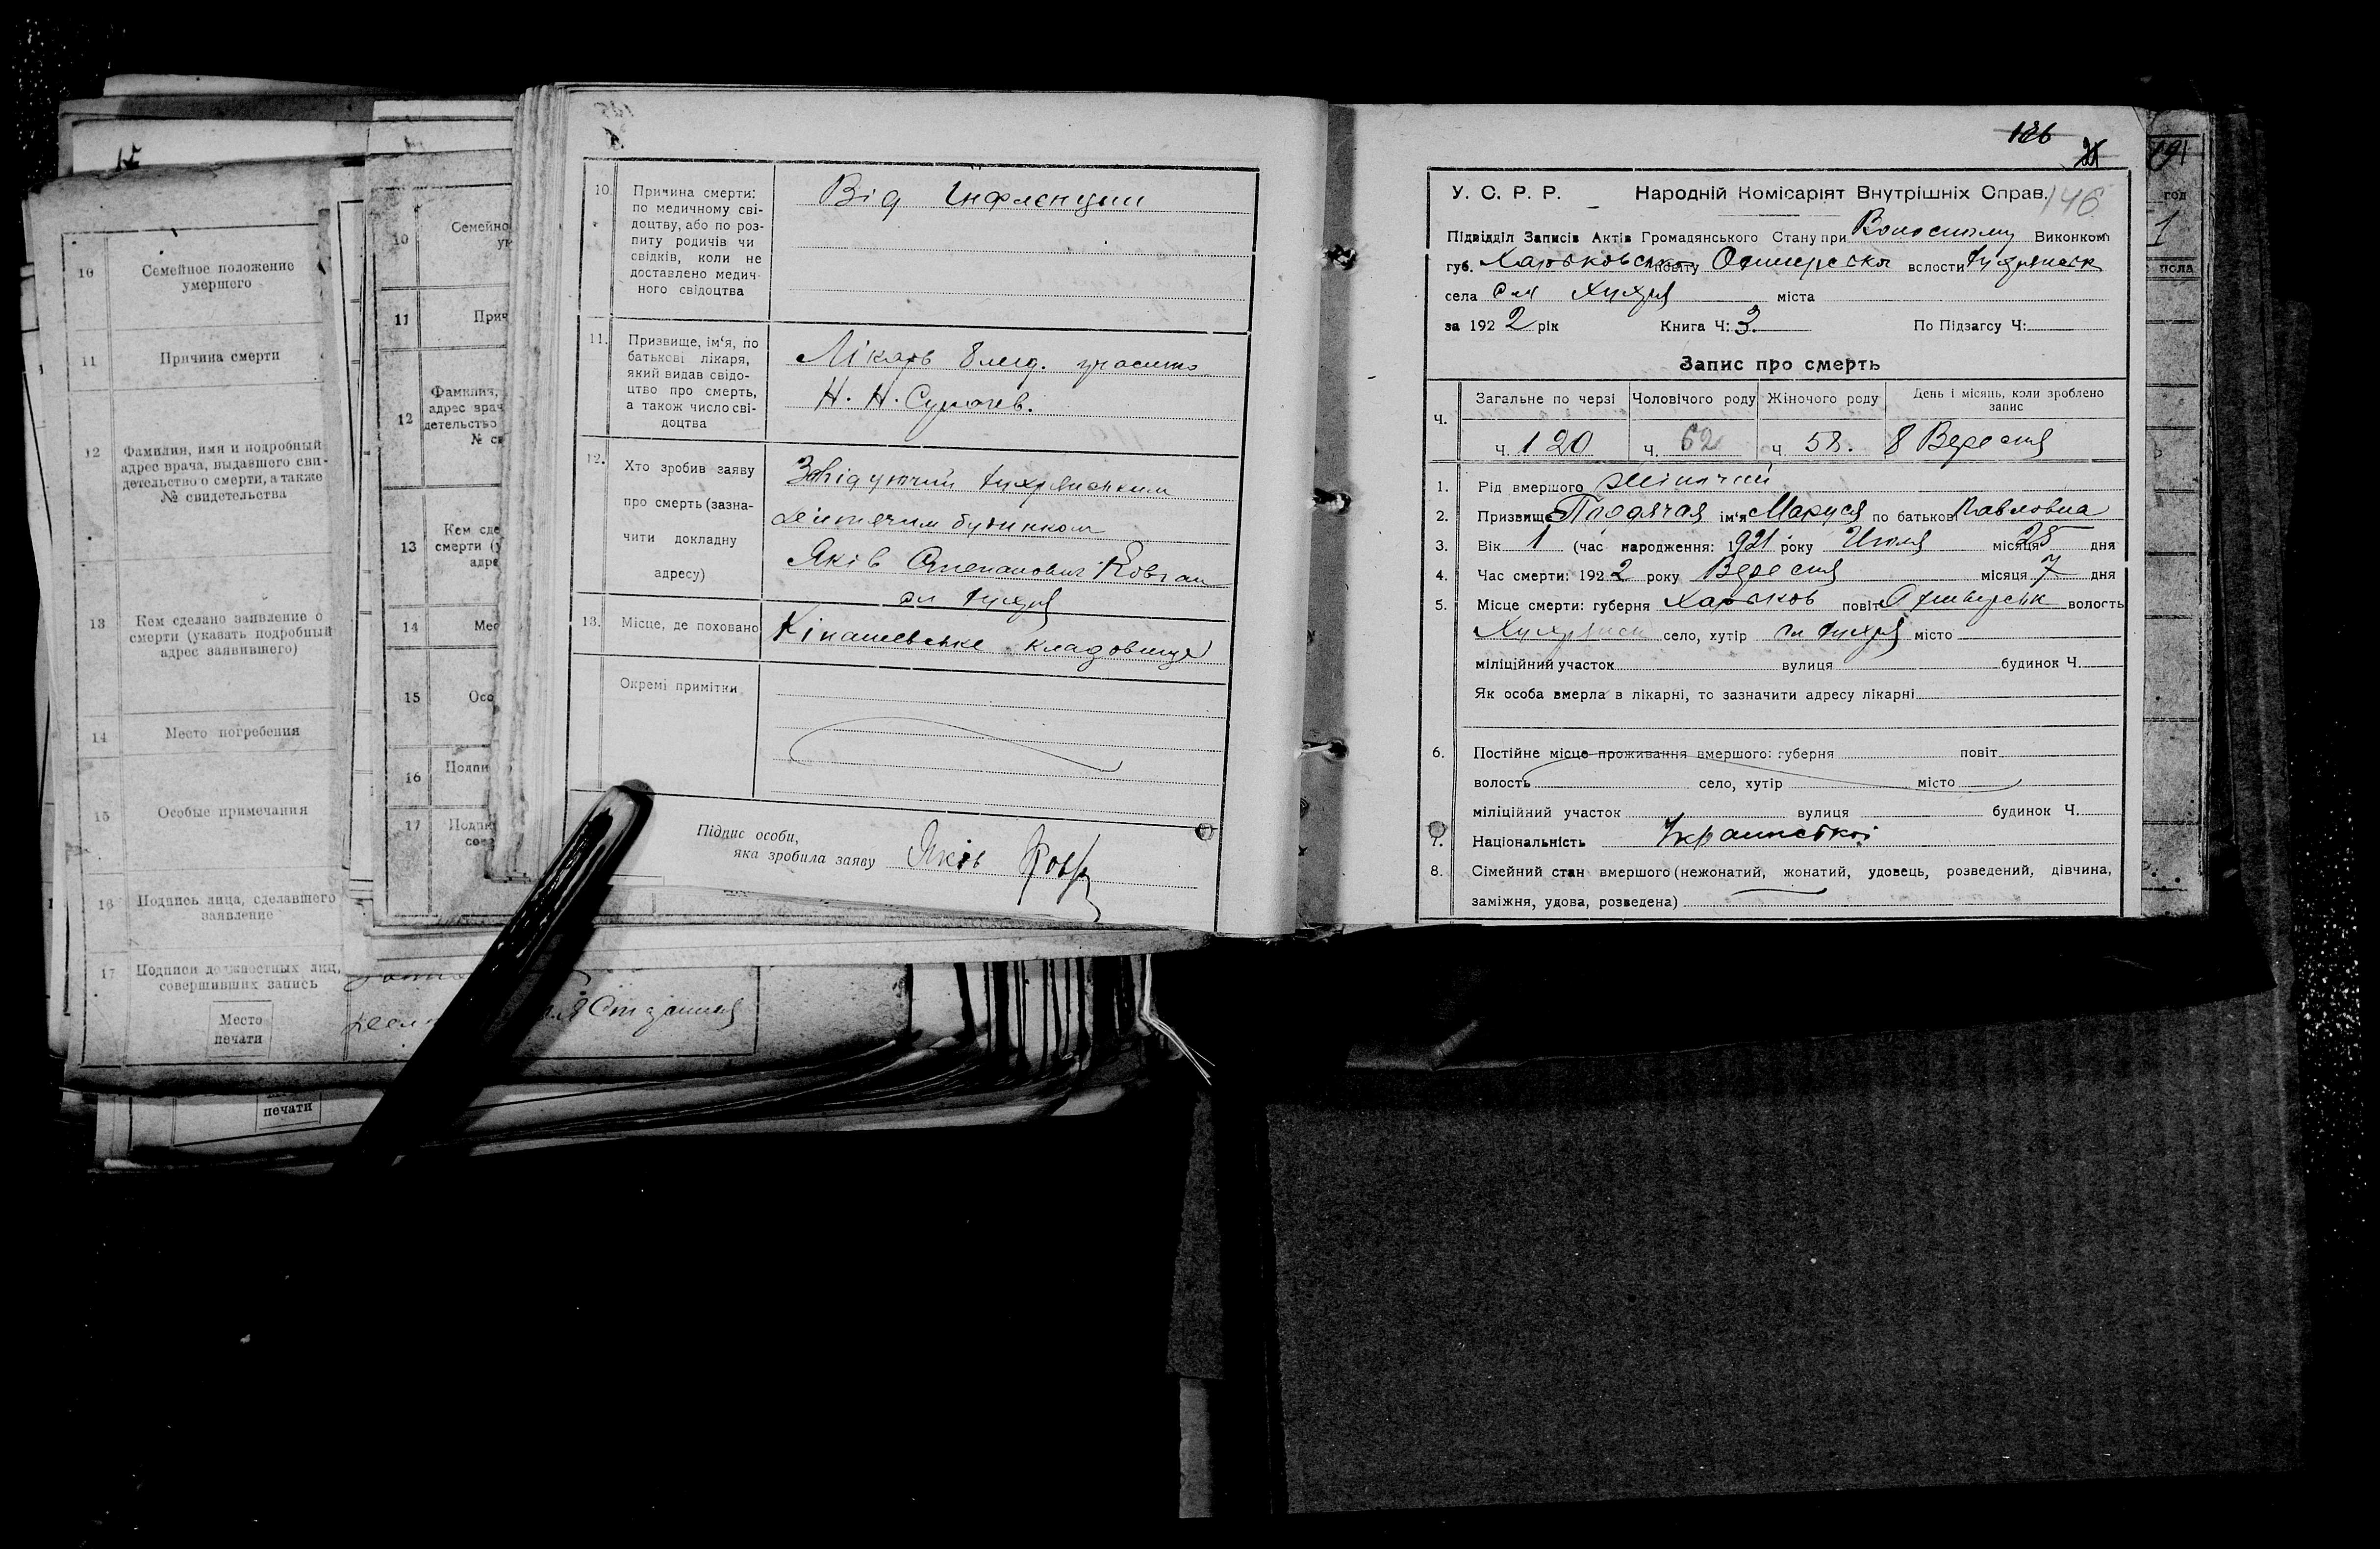 10 Семейное положение
умершего
11 Причина смерти
12 Фамилия, имя и подробный
адрес врача, выдавшего сви-
детельство о смерти, а также
№ свидетельства
13 Кем сделано заявление о
смерти (указать подробный
адрес заявившего)
14 Место погребения
15 Особые примечания
16 Подпись лица, сделавшего
заявление
17 Подписи должностных лиц,
совершивших запись
Место
печати
печати
10 Семейно
11 Прич
12 Фамилия,
адрес врач
детельство
13 Кем сде
смерти (у
адре
14 Мес
15 Осо
16 Подпи
17 Подпи
сов
10. Причина смерти:
по медичному сві-
доцтву, або по роз-
питу родичів чи
свідків, коли не
доставлено медич-
ного свідоцтва
Від Інфлєнции
11. Призвище, ім'я, по
батькові лікаря,
який видав свідо-
цтво про смерть,
а також число сві-
доцтва
Лікарь 8 мед.
Н. Н.
12. Хто зробив заяву
про смерть (зазна-
чити докладну
адресу)
Завідуючий Хухрянським
дитячим будинком
Яків Степанович
сл Хухря
13. Місце, де поховано
кладовище
Окремі примітки
Підпис особи,
яка зробила заяву Яків
126
146
У. С. Р. Р. Народній Комісаріят Внутрішніх Справ.
Підвідділ Записів Актів Громадянського Стану при Волосному Виконком
губ. Харьковсько повіту вслости Хухрянськ
села сл Хухря міста
за 1922 рік Книга Ч: 3. По Підзагсу Ч:
Запис про смерть
Ч. Загальне по черзі Чоловічого роду Жіночого роду День і місяць, коли зроблено
запис
ч. 120 ч. 62 ч. 58. 8 Вересня
1. Рід вмершого Жіночий
2. Призвище Піддячая ім'я Маруся по батькові Павловна
3. Вік 1 (час народження: 1921 року Июля місяця 25 дня
4. Час смерти: 1922 року Вересня місяця 7 дня
5. Місце смерти: губерня Харьков повіт волость
Хухрянск село, хутір сл Хухря місто
міліційний участок вулиця будинок Ч.
Як особа вмерла в лікарні, то зазначити адресу лікарні
6. Постійне місце проживання вмершого: губерня повіт
волость село, хутір місто
міліційний участок вулиця будинок Ч.
7. Національність Украинської
8. Сімейний стан вмершого (нежонатий, жонатий, удовець, розведений, дівчина,
заміжня, удова, розведена)
год
1
пола